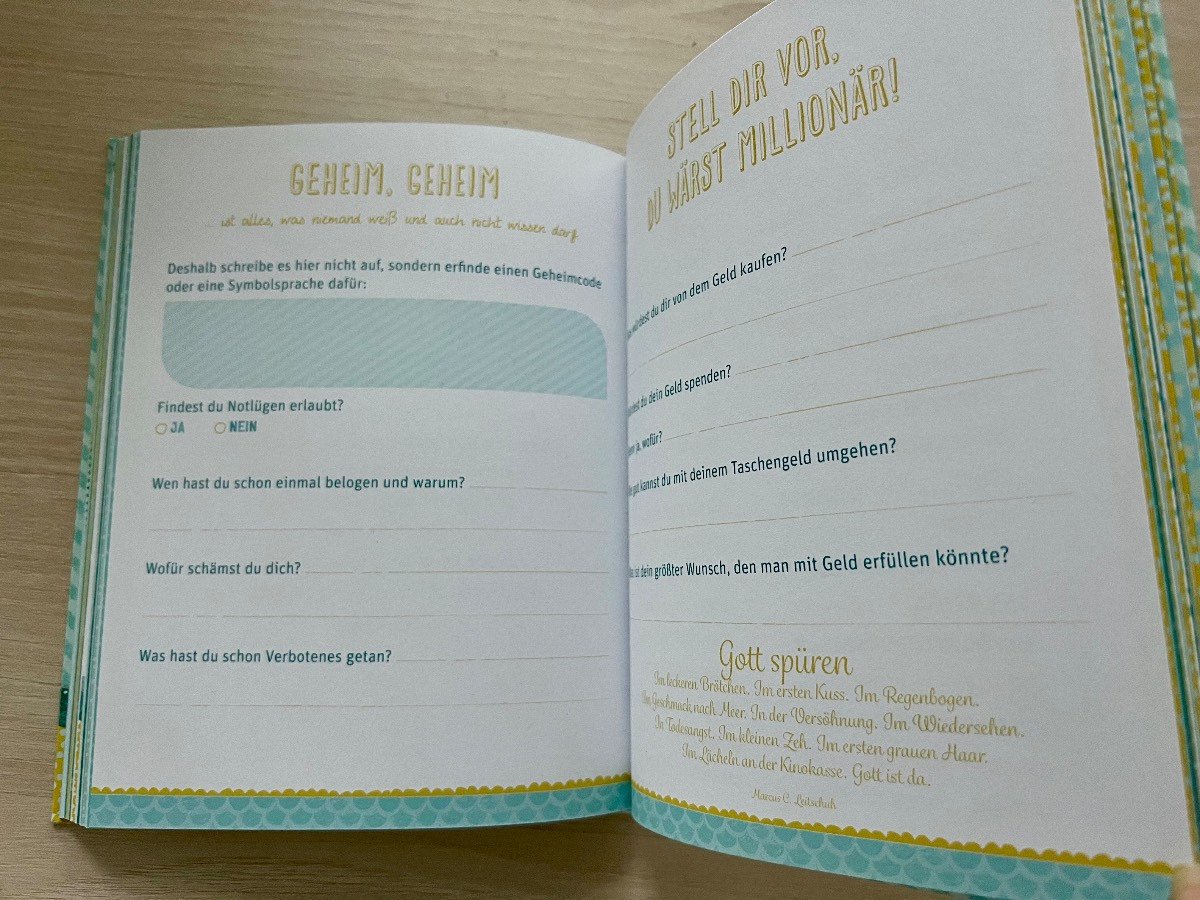 GEHEIM, GEHEIM
... ist alles, was niemand weiß und auch nicht wissen darf
Deshalb schreibe es hier nicht auf, sondern erfinde einen Geheimcode
oder eine Symbolsprache dafür:
Findest du Notlügen erlaubt?
JA NEIN
Wen hast du schon einmal belogen und warum?
Wofür schämst du dich?
Was hast du schon Verbotenes getan?
STELL DIR VOR,
DU WÄRST MILLIONÄR!
du dir von dem Geld kaufen?
du dein Geld spenden?
ja, wofür?
gut kannst du mit deinem Taschengeld umgehen?
ist dein größter Wunsch, den man mit Geld erfüllen könnte?
Gott spüren
Im leckeren Brötchen. Im ersten Kuss. Im Regenbogen.
Im Geschmack nach Meer. In der Versöhnung. Im Wiedersehen.
In Todesangst. Im kleinen Zeh. Im ersten grauen Haar.
Im Lächeln an der Kinokasse. Gott ist da.
Marcus C. Leitschuh